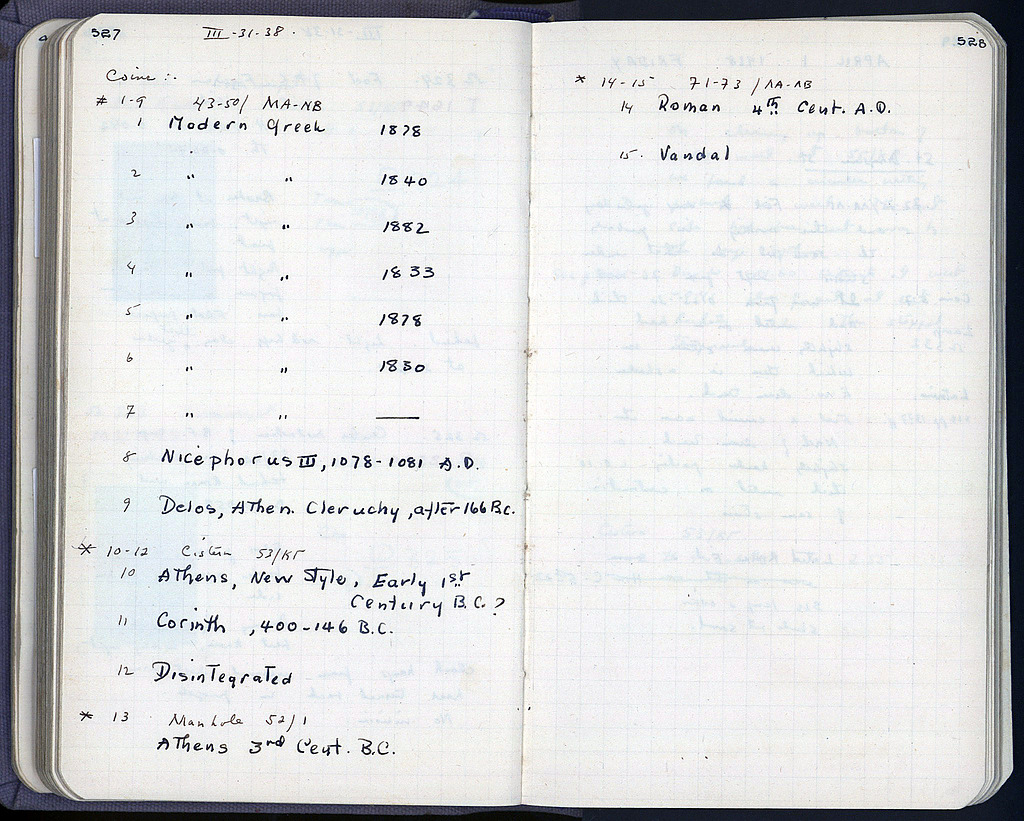 527 III-31-38.
Coins :.
# 1-9 43-50/ MA-NB
1 Modern Greek 1878
2 " " 1840
3 " " 1882
4 " " 1833
5 " " 1878
6 " " 1830
7 " " —
8 Nicephorus III, 1078-1081 A.D.
9 Delos, Athen. Cleruchy, after 166 B.C.
* 10-12 Cistern 53/KΣΤ
10 Athens, New Style, Early 1st
Century B.C.?
11 Corinth , 400-146 B.C.
12 Disintegrated
* 13 Manhole 52/1
Athens 3rd Cent. B.C.
528
* 14-15 71-73 / ΛA-ΛB
14 Roman 4th Cent. A.D.
15. Vandal